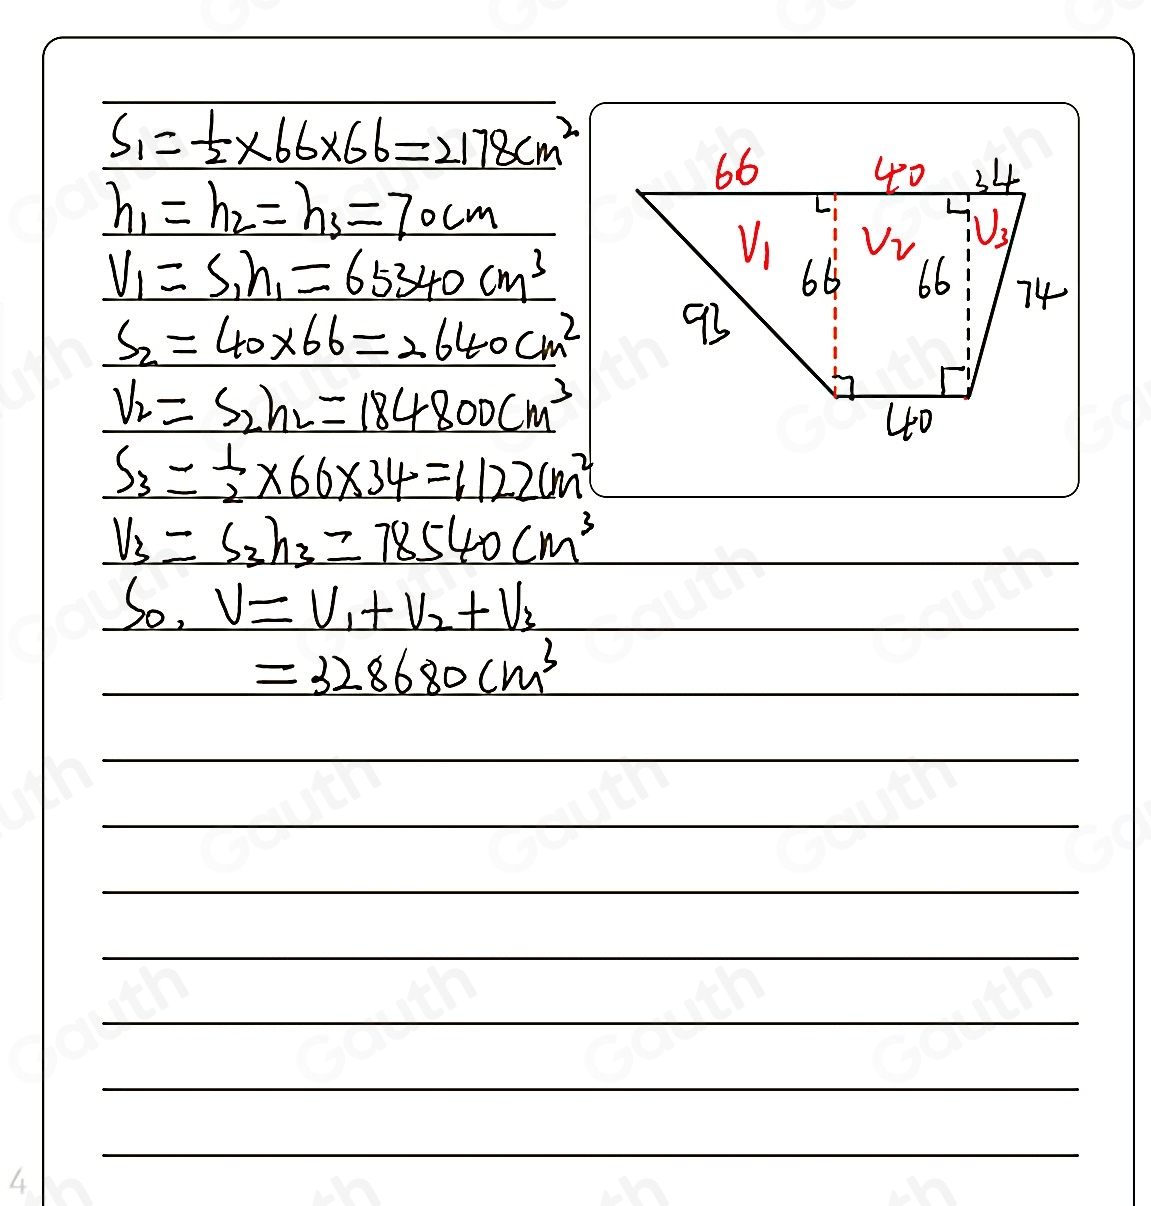 S₁ = 1/2 × 66 × 66 = 2178 cm²
h₁ = h₂ = h₃ = 70 cm
V₁ = S₁h₁ = 65340 cm³
S₂ = 40 × 66 = 2640 cm²
V₂ = S₂h₂ = 184800 cm³
S₃ = 1/2 × 66 × 34 = 1122 cm²
V₃ = S₃h₃ = 78540 cm³
So, V = V₁ + V₂ + V₃
= 328680 cm³
66 40 34
V₁ V₂ V₃
66 66 74
93
40
4
Gauth